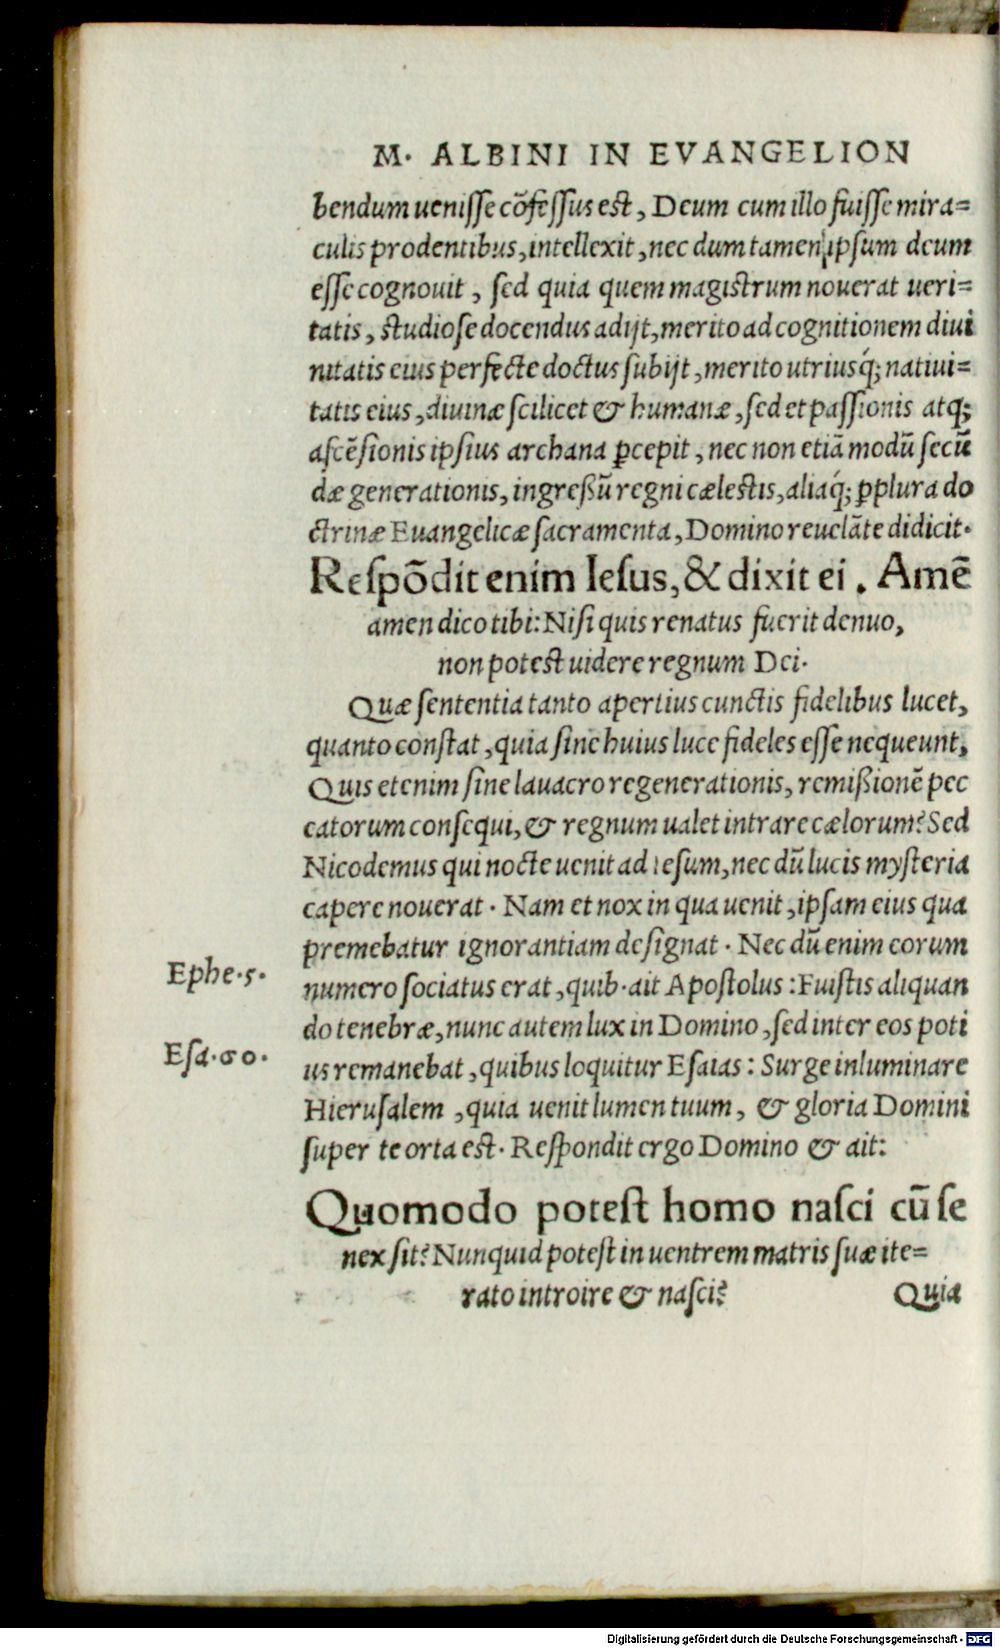 M. ALBINI IN EVANGELION
bendum uenisse cõfessus est, Deum cum illo fuisse mira=
culis prodentibus, intellexit, nec dum tamen ipsum deum
esse cognouit, sed quia quem magistrum nouerat ueri=
tatis, studiose docendus adijt, merito ad cognitionem diui
nitatis eius perfecte doctus subijt, merito utriusq́; natiui=
tatis eius, diuinæ scilicet & humanæ, sed et passionis atq;
ascẽsionis ipsius archana ꝑcepit, nec non etiã modũ secũ
dæ generationis, ingreßũ regni cælestis, aliaq́; ꝑplura do
ctrinæ Euangelicæ sacramenta, Domino reuelãte didicit.
Respõdit enim Iesus, & dixit ei. Amẽ
amen dico tibi: Nisi quis renatus fuerit denuo,
non potest uidere regnum Dei.
Quæ sententia tanto apertius cunctis fidelibus lucet,
quanto constat, quia sine huius luce fideles esse nequeunt,
Quis etenim sine lauacro regenerationis, remißionẽ pec
catorum consequi, & regnum ualet intrare cælorum? Sed
Nicodemus qui nocte uenit ad Iesum, nec dũ lucis mysteria
capere nouerat. Nam et nox in qua uenit, ipsam eius qua
premebatur ignorantiam designat. Nec dũ enim eorum
Ephe.5.
numero sociatus erat, quib. ait Apostolus: Fuistis aliquan
do tenebræ, nunc autem lux in Domino, sed inter eos poti
Esa.60.
us remanebat, quibus loquitur Esaias: Surge inluminare
Hierusalem, quia uenit lumen tuum, & gloria Domini
super te orta est. Respondit ergo Domino & ait:
Quomodo potest homo nasci cũ se
nex sit? Nunquid potest in uentrem matris suæ ite=
rato introire & nasci?
Quia
Digitalisierung gefördert durch die Deutsche Forschungsgemeinschaft - DFG